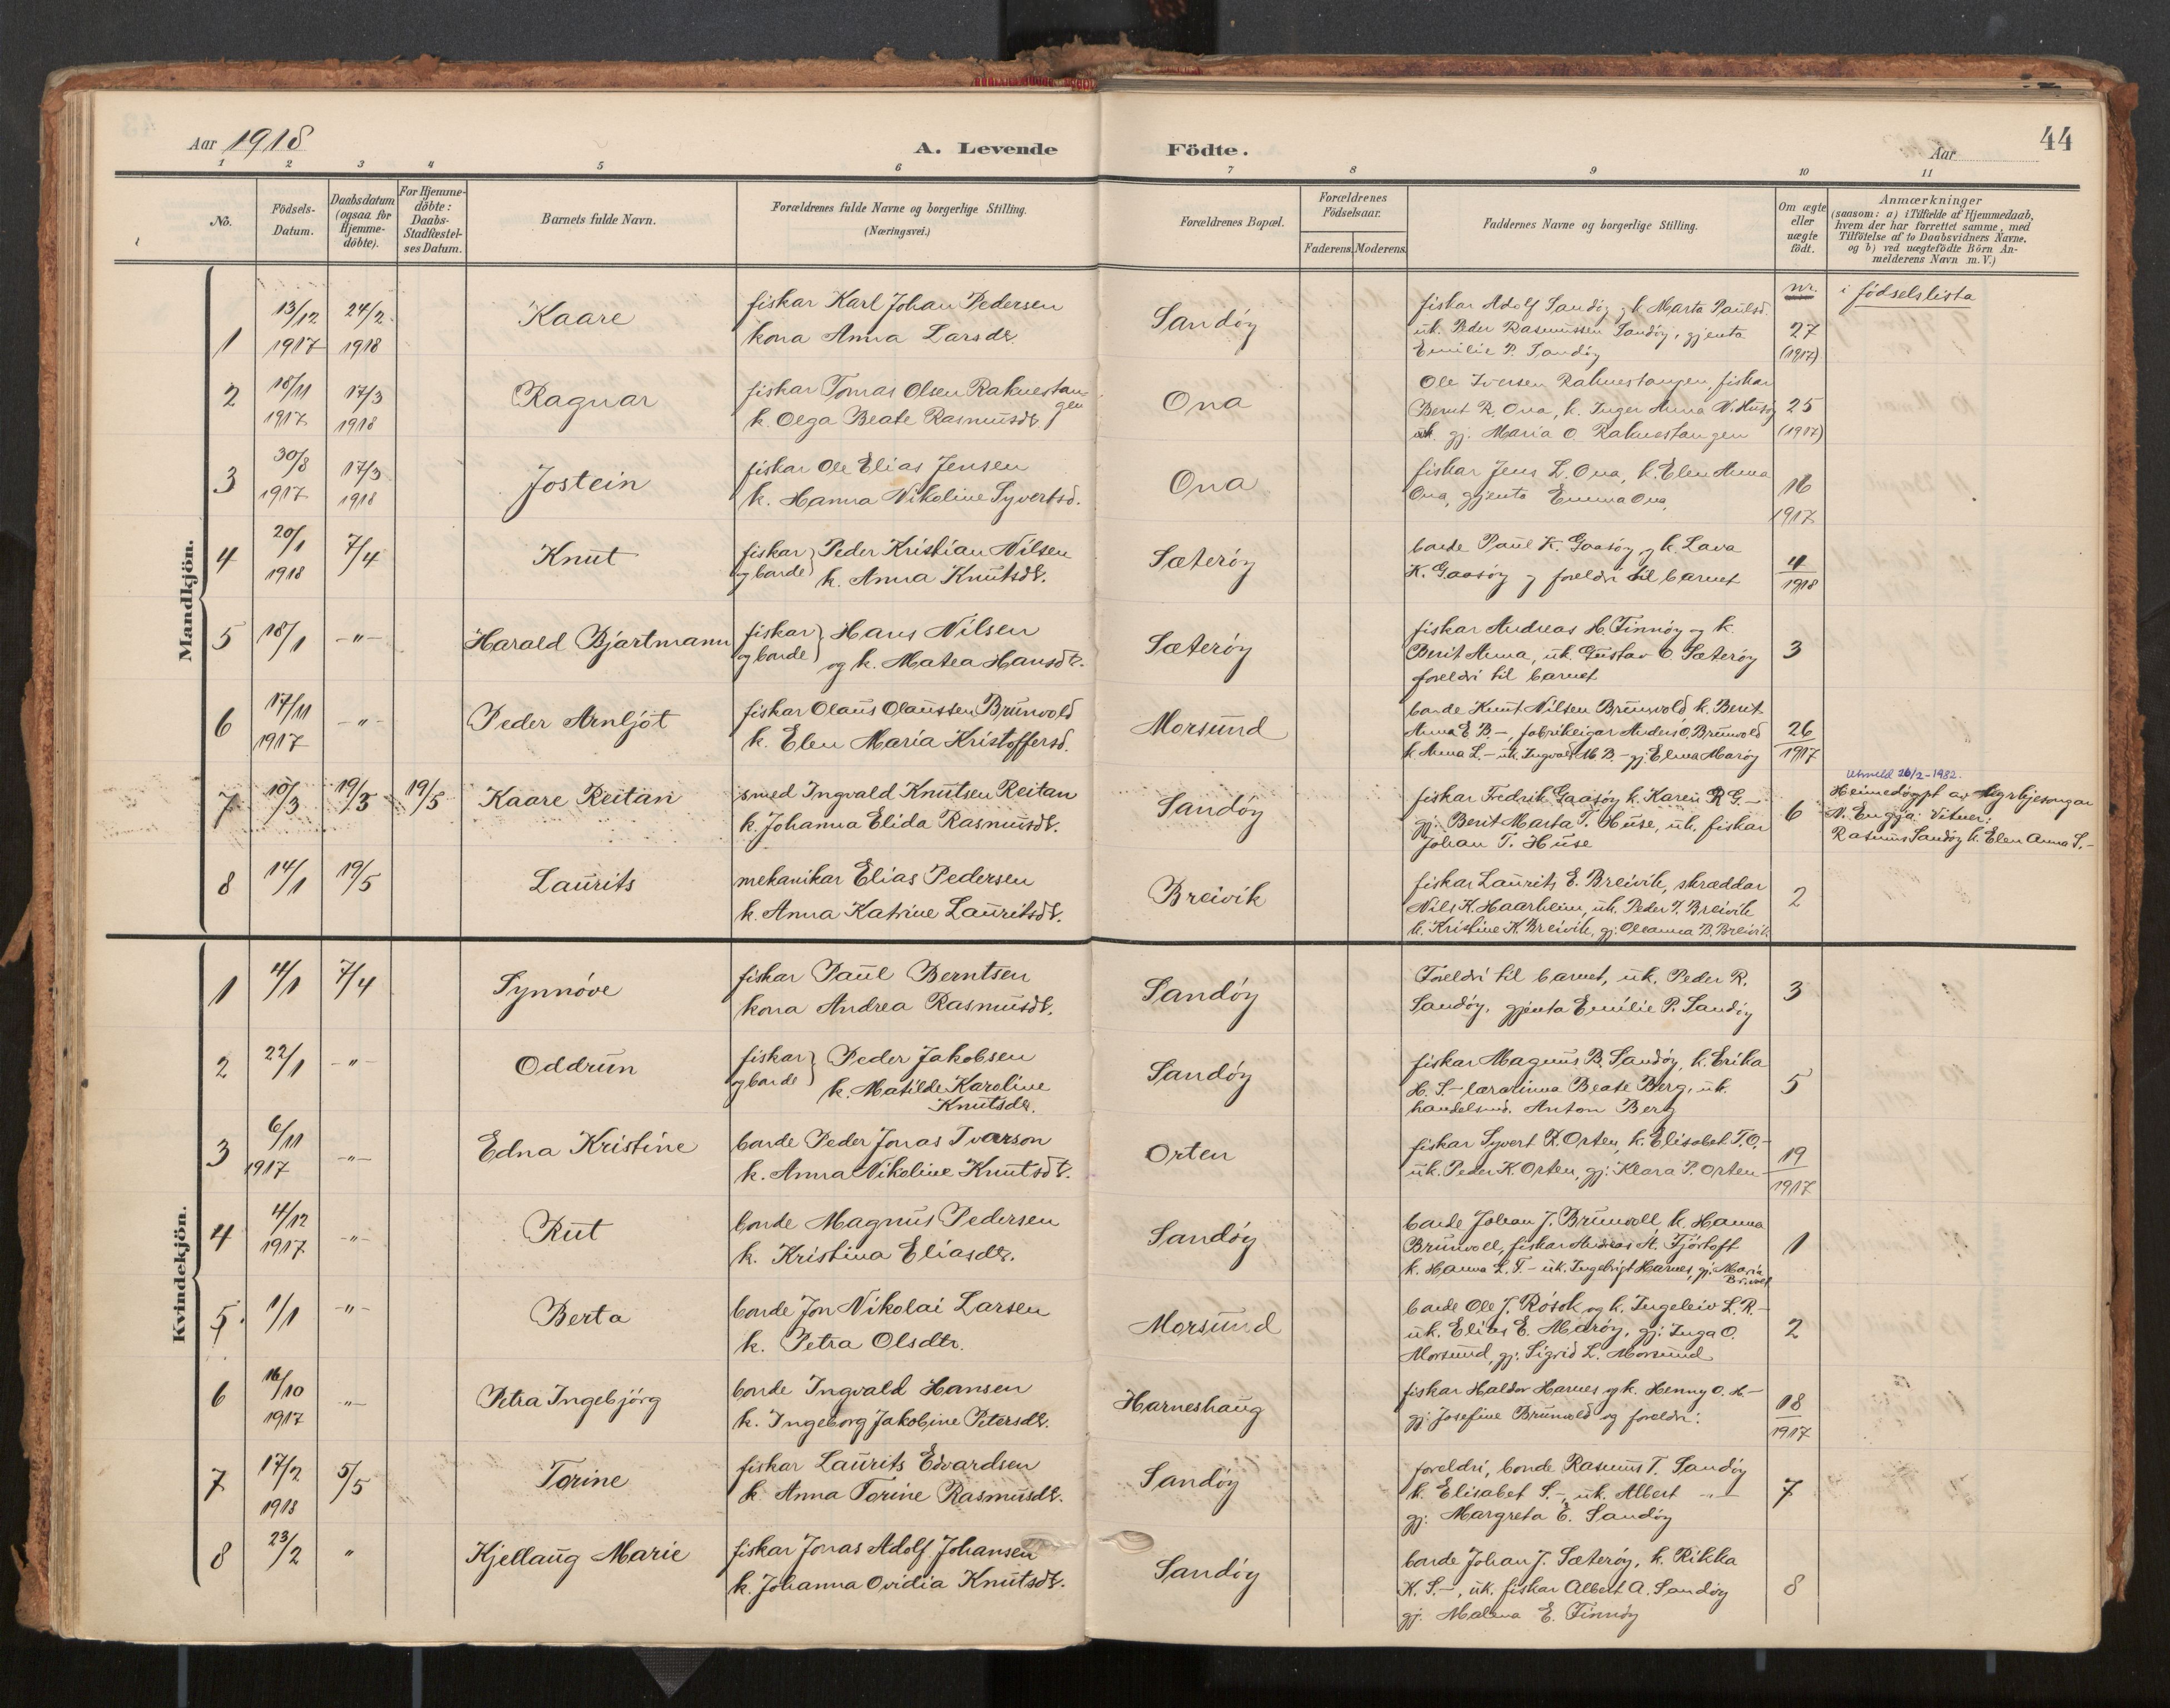 Aar 1918
A. Levende
Födte.
Aar
44
1 2 3 4 5 6 7 8 9 10 11
No.
Födsels-
Datum.
Daabsdatum
(ogsaa for
Hjemme-
döbte).
For Hjemme-
döbte:
Daabs-
Stadfæstel-
ses Datum.
Barnets fulde Navn.
Forældrenes fulde Navne og borgerlige Stilling.
(Næringsvei.)
Forældrenes Bopæl.
Forældrenes
Födselsaar.
Faderens. Moderens.
Faddernes Navne og borgerlige Stilling.
Om ægte
eller
uægte
födt.
Anmærkninger
(saasom: a) i Tilfælde af Hjemmedaab,
hvem der har forrettet samme, med
Tilföielse af to Daabsvidners Navne.
og b) ved uægtefödte Börn An-
melderens Navn m. V.)
Mandkjön.
nr. i fødselslista
1 13/12 1917 24/2 1918 Kaare
fiskar Karl Johan Pedersen
kona Anna Larsdr.
Sandöy
fiskar Adolf Sandöy og k. Marta Paulsd.
uk. Peder Rasmussen Sandöy, gjenta
Emilie P. Sandöy
27
(1917)
2 18/11 1917 17/3 1918 Ragnar
fiskar Tomas Olsen Raknestan-
gen
k. Olga Beate Rasmusdt.
Ona
Ole Iversen Raknestangen, fiskar
Bernt R. Ona, k. Inger Anna N. Husöy
uk. gj. Maria O. Raknestangen
25
(1917)
3 30/8 1917 17/3 1918 Jostein
fiskar Ole Elias Jensen
k. Hanna Nikoline Syvertsd.
Ona
fiskar Jens L. Ona, k. Elen Anna
Ona, gjenta Emma Ona,
16
1917
4 20/1 1918 7/4 Knut
fiskar og bonde } Peder Kristian Nilsen
k. Anna Knutsdt.
Sæteröy
bonde Paul K. Gaasöy og k. Lava
K. Gaasöy og foreldri til barnet
4
1918
5 18/1 -"- Harald Bjartmann
fiskar og bonde } Hans Nilsen
og k. Matea Hansdt.
Sæteröy
fiskar Andreas H. Finnöy og k.
Berit Anna, uk. Gustav O. Sæteröy
foreldri til barnet
3
6 17/11 1917 -"- Peder Arnljot
fiskar Olaus Olaussen Brunvold
k. Elen Maria Kristoffersd.
Morsund
bonde Knut Nilsen Brunvold k. Berit
Anna E B.-, fabrikeigar Anders O. Brunvold
k. Anna L.- uk. Ingvald M. B.- gj. Elina Maröy
26
1917
7 10/3 19/3 19/5 Kaare Reitan
smed Ingvald Knutsen Reitan
k. Johanna Elida Rasmusdt.
Sandöy
fiskar Fredrik Gaasöy k. Karen R G.-
gj. Berit Marta T. Huse, uk. fiskar
Johan T. Huse
6
Utmeld 26/2-1982.
Heimedøypt av kyrkjesongar
N. Engja. Vitner:
Rasmus Sandöy k. Elen Anna S.-
8 14/1 19/5 Laurits
mekanikar Elias Pedersen
k. Anna Katrine Lauritsdt.
Breivik
fiskar Laurits E. Breivik, skræddar
Nils K. Haarheim, uk. Peder J. Breivik
k. Kristine K. Breivik, gj. Oleanna B. Breivik
2
Kvindekjön.
1 4/1 7/4 Synnöve
fiskar Paul Berntsen
kona Andrea Rasmusdt.
Sandöy
Foreldri til barnet, uk. Peder R.
Sandöy, gjenta Emilie P. Sandöy
3
2 22/1 -"- Oddrun
fiskar og bonde } Peder Jakobsen
k. Matilde Karoline
Knutsdr.
Sandöy
fiskar Magnus B. Sandöy, k. Erika
H. S.- lærarinna Beate Berg, uk.
handelsmd. Anton Berg
5
3 6/11 1917 -"- Edna Kristine
bonde Peder Jonas Ivarson
k. Anna Nikoline Knutsdt.
Orten
fiskar Syvert R. Orten, k. Elisabet T. O.-
uk. Peder K. Orten, gj. Klara P. Orten
19
1917
4 4/12 1917 -"- Rut
bonde Magnus Pedersen
k. Kristina Eliasdr.
Sandöy
bonde Johan J. Brunvoll k. Hanna
Brunvoll, fiskar Andreas M. Fjörtoft
k. Hanna L. F.- uk. Ingebrigt Harnes, gj. Maria
Brunvoll
1
5. 1/1 -"- Berta
bonde Jon Nikolai Larsen
k. Petra Olsdtr.
Morsund
bonde Ole J. Rösok og k. Ingeleiv L. R.-
uk. Elias E. Maröy, gj. Inga O.
Morsund, gj. Sigrid L. Morsund
2
6 16/10 1917 -"- Petra Ingebjörg
bonde Ingvald Hansen
k. Ingeborg Jakobine Petersdt.
Harneshaug
fiskar Haldor Harnes og k. Henny O. H-
gj. Josefine Brunvold og foreldri.
18
1917
7 17/2 1918 5/5 Torine
fiskar Laurits Edvardsen
k. Anna Torine Rasmusdt.
Sandöy
foreldri, bonde Rasmus T. Sandöy
k. Elisabet S.-, uk. Albert -"-
gj. Margreta E. Sandöy
7
8 23/2 " Kjellaug Marie
fiskar Jonas Adolf Johansen
k. Johanna Ovidia Knutsdt.
Sandöy
bonde Johan J. Sæteröy, k. Rikka
K. S.-, uk. fiskar Albert A. Sandöy
gj. Malena E. Finnöy
8